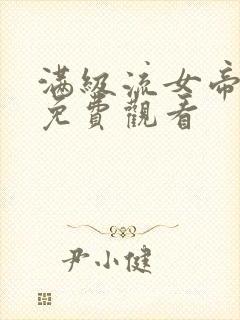 滿級流女帝
免費觀看
尹小健